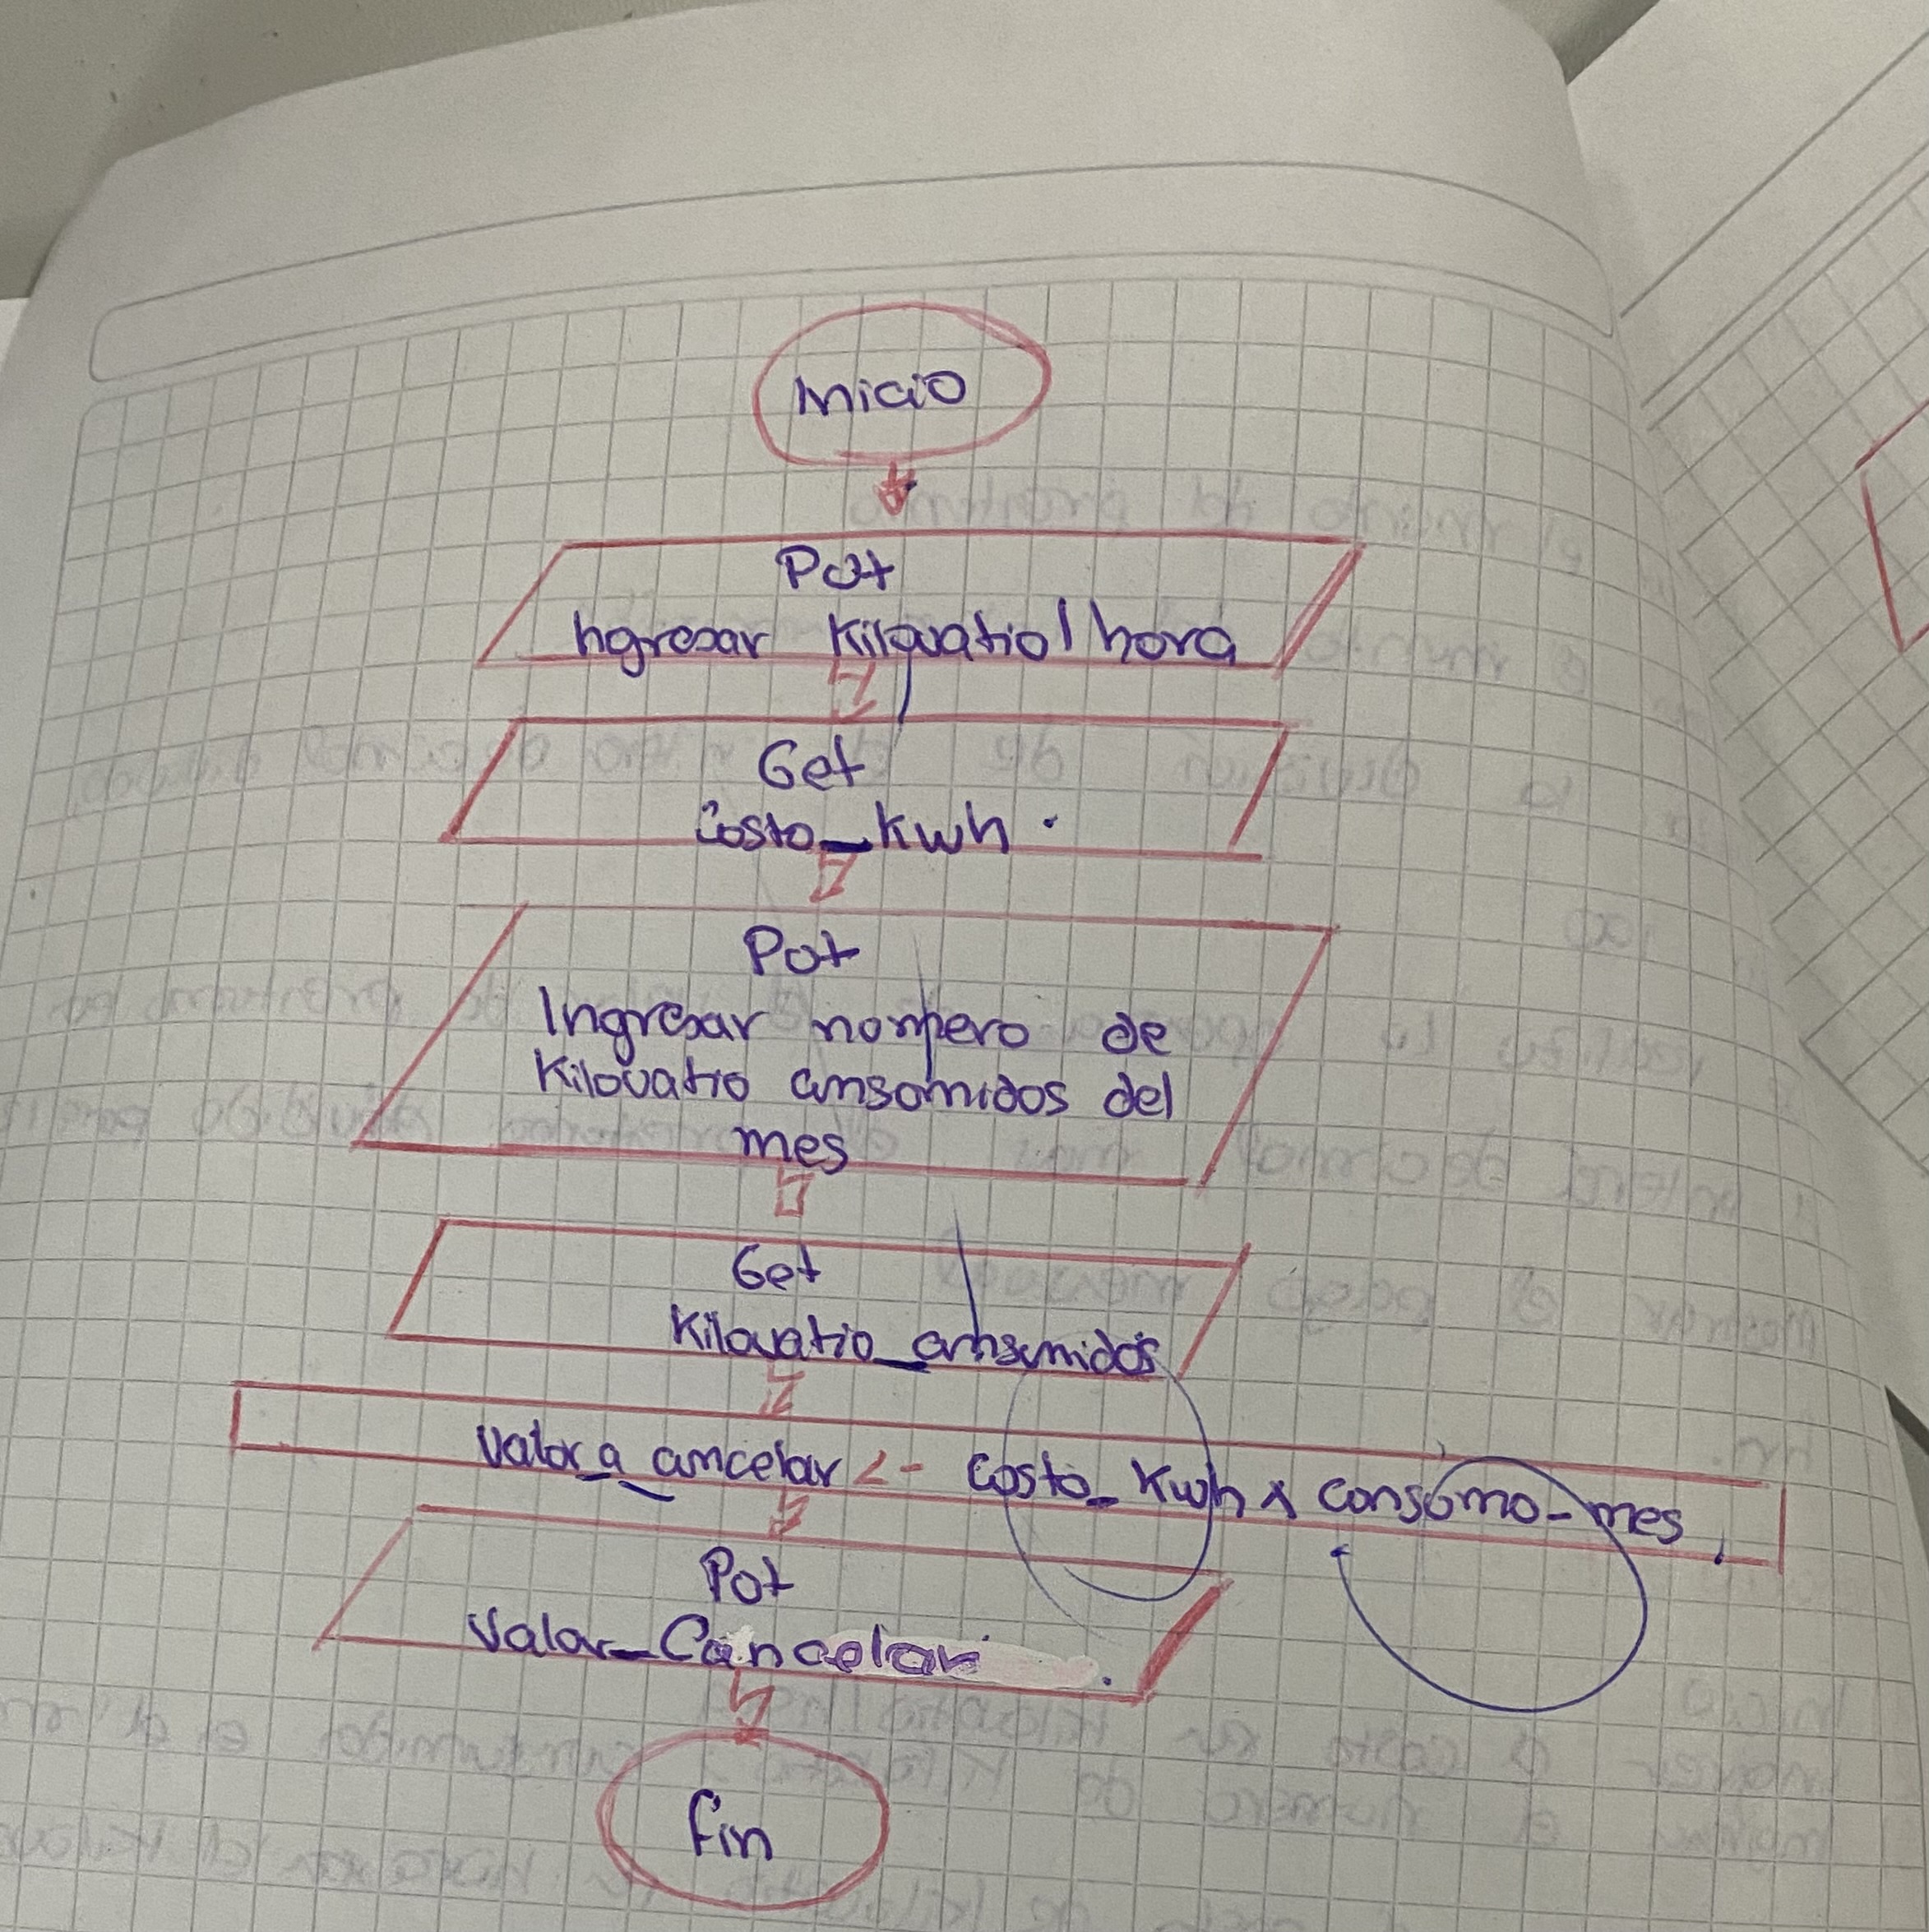 Inicio
Put
Ingresar Kilovatio/hora
Get
Costo_Kwh.
Put
Ingresar numero de
Kilovatio consumidos del
mes
Get
Kilovatio_consumidos
Valor_a_cancelar <- Costo_Kwh x consumo-mes
Put
Valor_Cancelar.
fin